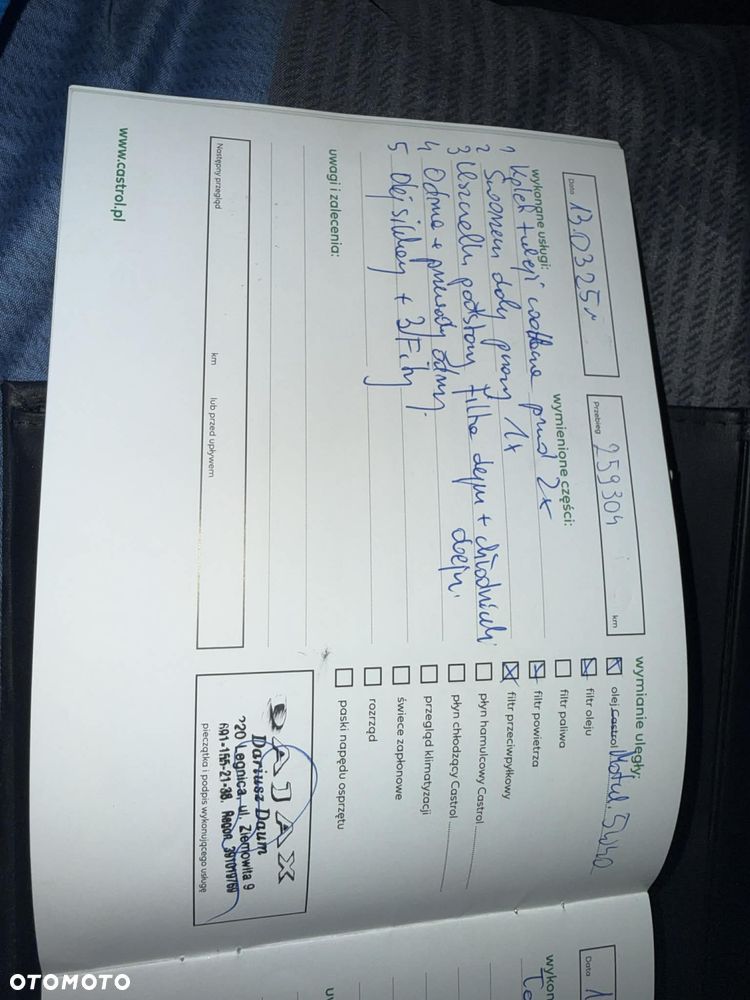 Data 13.03.25r
Przebieg 259304 km
wykonane usługi:
wymienione części:
1 Kplet tulei wahacza przod 2x
2 Sworzeń dolny prawy 1x
3 Uszczelki podstawy filtra oleju + chłodniczki
oleju.
4 Odma + przewody odmy.
5 Olej silnikowy + 3/Filtry
uwagi i zalecenia:
Następny przegląd
km
lub przed upływem
www.castrol.pl
wymianie uległy:
olej Castrol Motul 5W40
filtr oleju
filtr paliwa
filtr powietrza
filtr przeciwpyłkowy
płyn hamulcowy Castrol
płyn chłodzący Castrol
przegląd klimatyzacji
świece zapłonowe
rozrząd
paski napędu osprzętu
DAJAX
Dariusz Daum
220 Legnica, ul. Ziemowita 9
691-155-21-38. Regon 391019769
pieczątka i podpis wykonującego usługę
Data 1
wykon
OTOMOTO